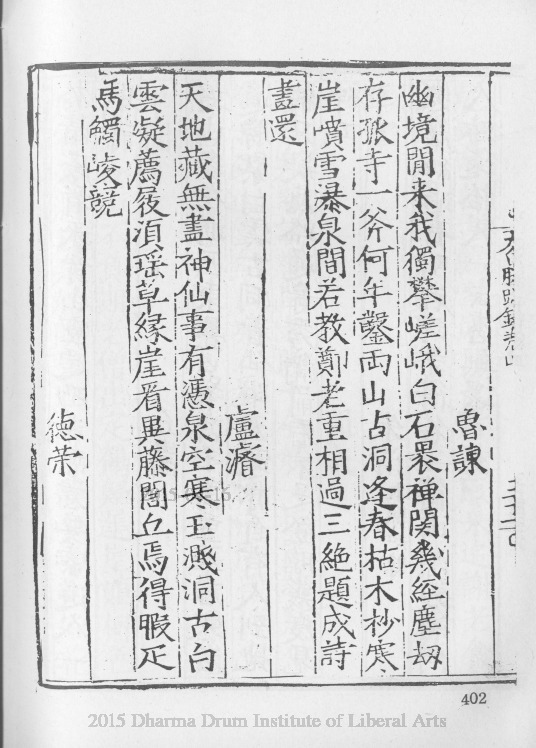 魯諫
幽境閒来我獨攀嵯峨白石晨禅関幾经塵刼
存孤寺一斧何年鑿両山占洞逢春枯木杪寒
崖噴雪瀑泉間若教鄭老重相過三絶題成詩
畫還
盧濬
天地藏無盡神仙事有憑泉空寒玉溅洞古白
雲凝薦屐湏瑶草緣崖看異藤閣丘焉得暇疋
馬觸崚競
德荣
402
2015 Dharma Drum Institute of Liberal Arts